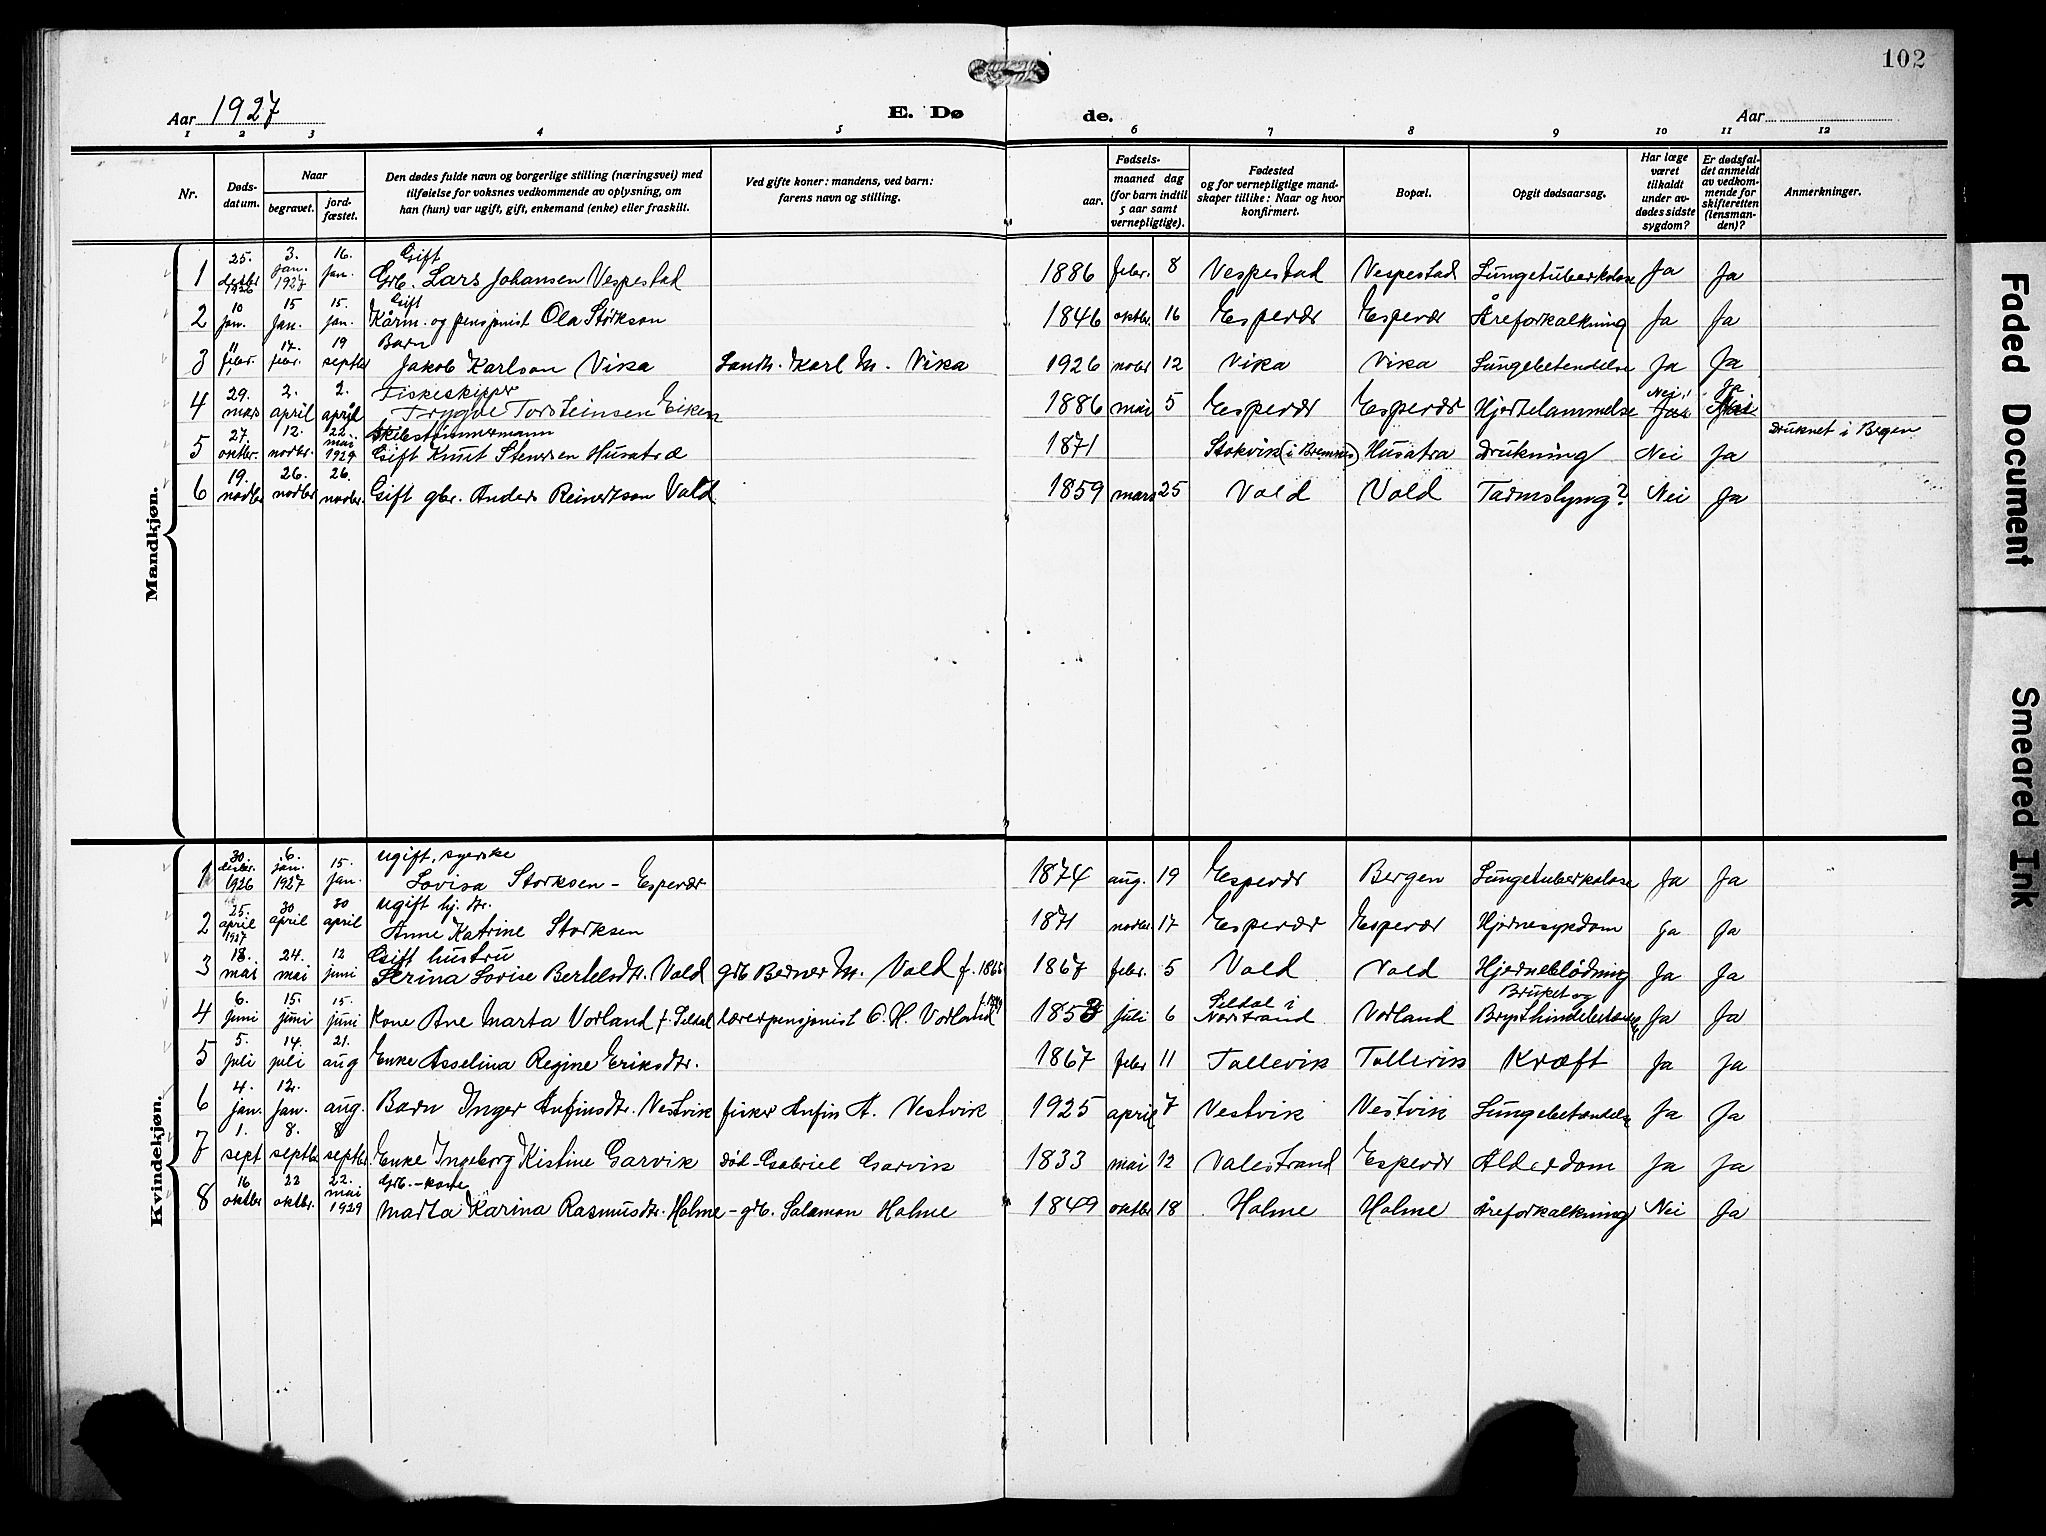 102
Aar 1927 E. Døde. Aar
1 2 3 4 5 6 7 8 9 10 11 12
Nr.
Døds-
datum.
Naar
begravet.
jord-
fæstet.
Den dødes fulde navn og borgerlige stilling (næringsvei) med
tilføielse for voksnes vedkommende av oplysning, om
han (hun) var ugift, gift, enkemand (enke) eller fraskilt.
Ved gifte koner: mandens, ved barn:
farens navn og stilling.
Fødsels-
aar.
maaned dag
(for barn indtil
5 aar samt
vernepligtige).
Fødested
og for vernepligtige mand-
skaper tillike: Naar og hvor
konfirmert.
Bopæl.
Opgit dødsaarsag.
Har læge
været
tilkaldt
under av-
dødes sidste
sygdom?
Er dødsfal-
det anmeldt
av vedkom-
mende for
skifteretten
(lensman-
den)?
Anmerkninger.
Mandkjøn.
1 25. 1926 3. jan. 1927 16. jan. Gift Grb. Lars Johansen Vespestad 1886 febr. 8 Vespestad Vespestad Lungetuberkolose Ja Ja
2 10 jan. 15 jan. 15. jan. Gift Kårm. og pensjonist Ola Størkson 1846 oktbr. 16 Espevær Espevær Åreforkalkning Ja Ja
3 11 febr. 17. febr. 19 septbr Barn Jakob Karlson Vika Landh. Karl M. Vika 1926 novbr 12 Vika Vika Lungebetendelse Ja Ja
4 29. mars 2. april 2. april Fiskeskipper Trygve Torsteinsen Eiken 1886 mai 5 Espevær Espevær Hjertelammelse Nei! Ja
5 27. oktbr. 12. novbr. 22. mai 1929 Skibstømmermann Gift Knut Stensen Husatræ 1871 Stokvik (i Bremnes) Husatræ Drukning Nei Ja Druknet i Bergen
6 19. novbr 26. novbr 26. novbr. Gift gbr. Anders Reinertson Vold 1859 mars 25 Vold Vold Tarmslyng? Nei Ja
Kvindekjøn.
1 30. desbr. 1926 6. jan. 1927 15. jan. ugift, syerske Lovisa Storksen - Espevær 1874 aug. 19 Espevær Bergen Lungetuberkolose Ja Ja
2 25. april 1927 30 april 30 april ugift hj. dr. Anne Katrine Storksen 1871 novbr 17 Espevær Espevær Hjernesykdom Ja Ja
3 18. mai 24. mai 12 juni Gift hustru Serina Lovise Bertelsdtr. Vold grb Berner M. Vold f. 1865 1867 febr. 5 Vold Vold Hjerneblødning Ja Ja
4 6. juni 15. juni 15. juni Kone Ane Marta Vorland f. Sildal lærerpensjonist O. H. Vorland 1853 juli 6 Sildal i Nærstrand Vorland Bruket og Brysthindebetændelse Ja Ja
5 5. juli 14. juli 21. aug Enke Asselina Regine Eriksdtr. 1867 febr 11 Tollevik Tollevik Kræft Ja Ja
6 4. jan. 12. jan. aug. Barn Inger Anfinsdtr. Vestvik fisker Anfin A. Vestvik 1925 april 7 Vestvik Vestvik Lungebetændelse Ja Ja
7 1. sept 8. septbr 8 septbr. Enke Ingeborg Kistine Garvik død - Gabriel Garvik 1833 mai 12 Valestrand Espevær Alderdom Ja Ja
8 16 oktbr 22 oktbr. 22. mai 1929 Grb. - kone Marta Karina Rasmusdtr. Holme - grb. Salamon Holme 1849 oktbr 18 Holme Holme Åreforkalkning Nei Ja
Faded Document
Smeared Ink